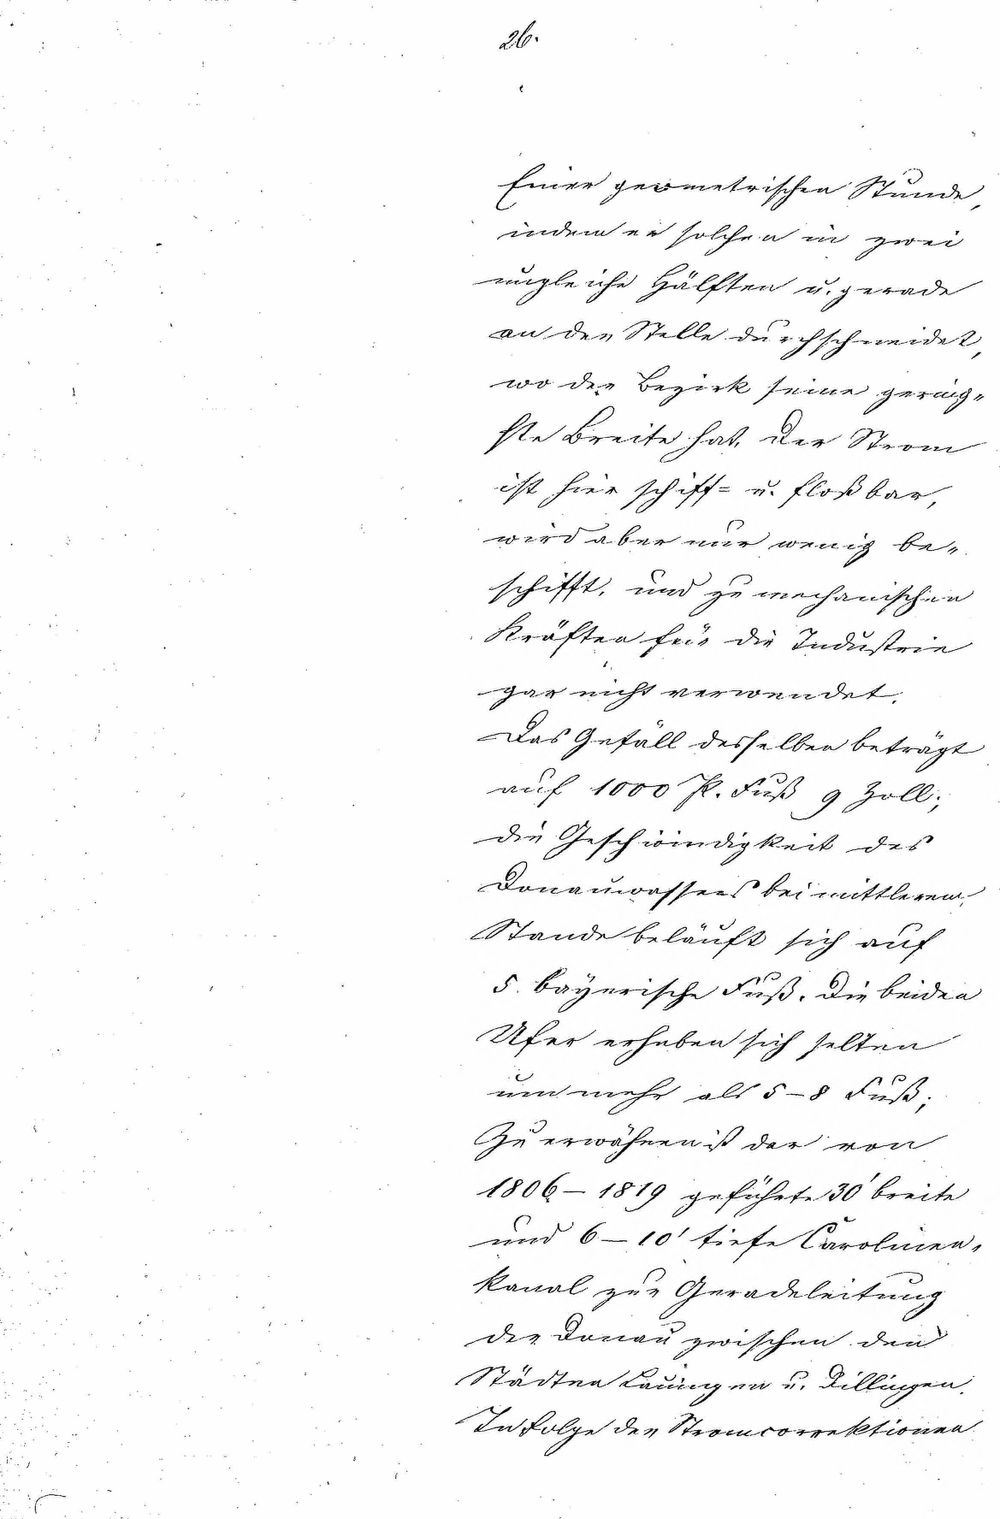 26.
Einer geometrischen Stunde,
indem er solchen in zwei
ungleiche Hälften u. gerade
an der Stelle durchschneidet,
wo der Bezirk seine gering-
ste Breite hat. Der Strom
ist hier schiff= u. floßbar,
wird aber nur wenig be-
schifft, und zu mechanischen
Kräften für die Industrie
gar nicht verwendet.
Das Gefäll desselben beträgt
auf 1000 P. Fuß 9 Zoll;
die Geschwindigkeit des
Donauwassers bei mittlerem
Stande beläuft sich auf
5 bayerische Fuß. Die beiden
Ufer erheben sich selten
um mehr als 5–8 Fuß;
Zu erwähnen ist der von
1806–1819 geführte 30' breite
und 6–10' tiefe Carolinen-
kanal zur Geradeleitung
der Donau zwischen den
Städten Lauingen u. Dillingen.
In Folge der Stromcorrektionen